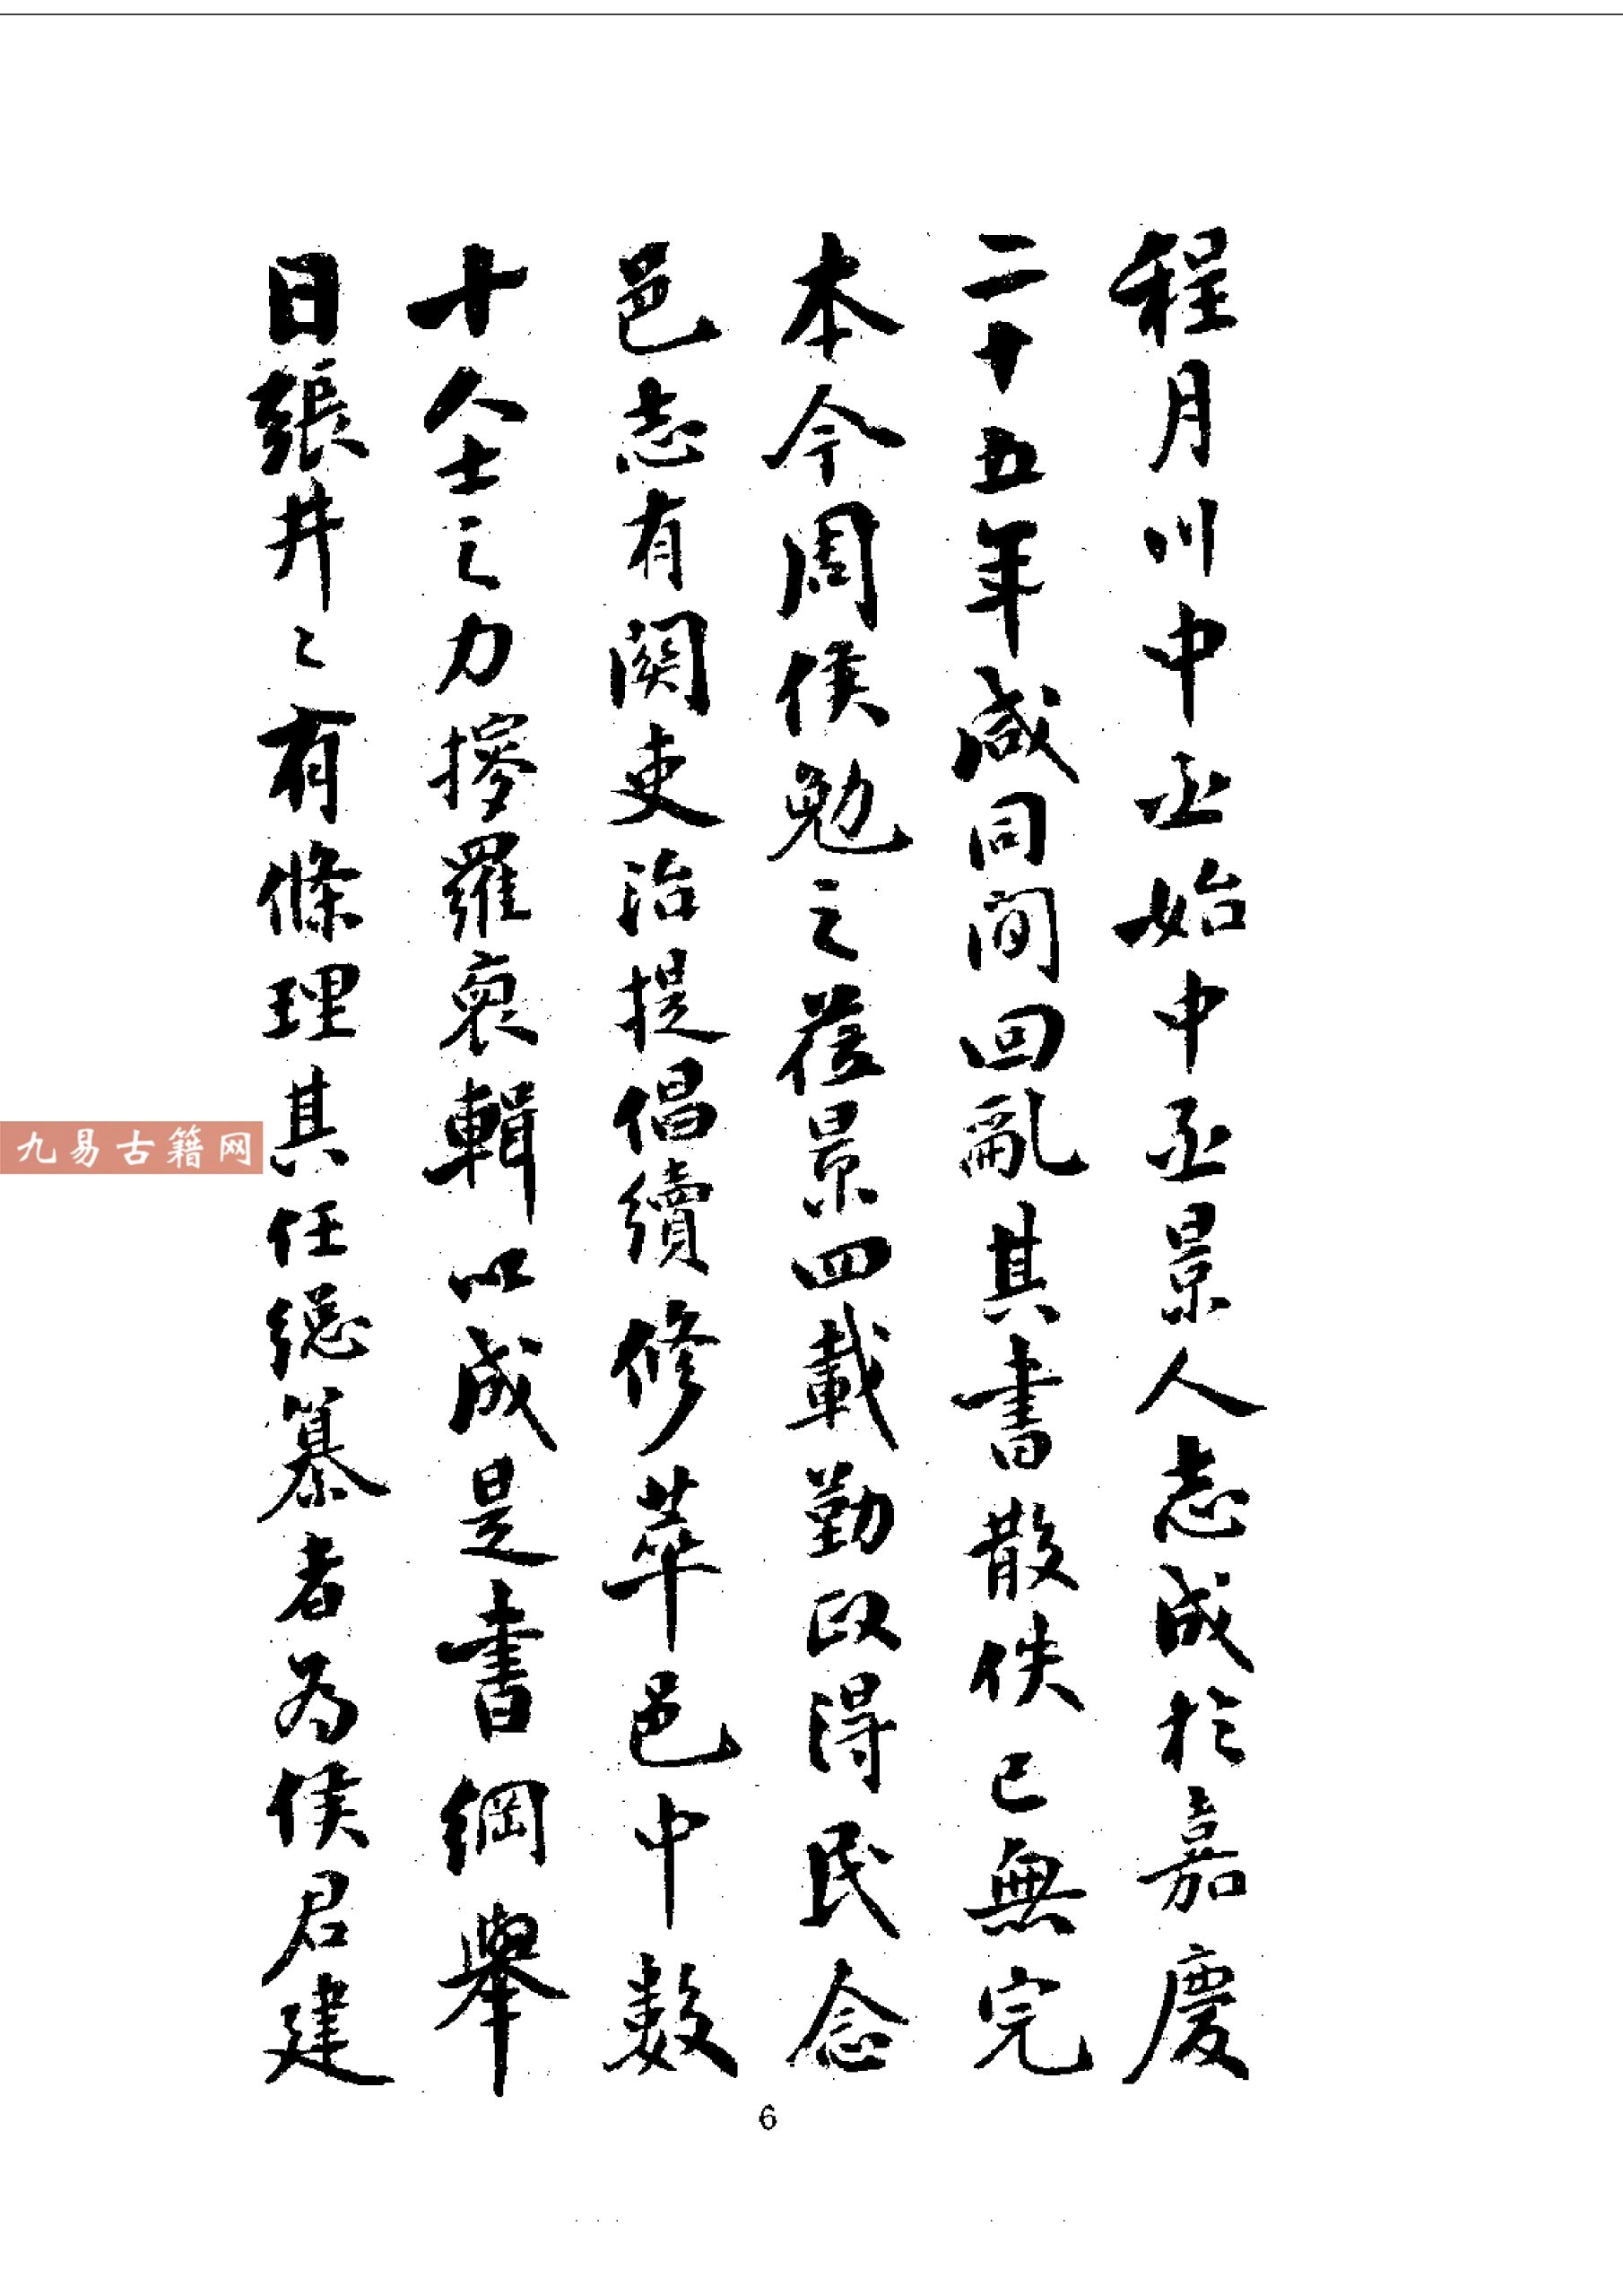 程月川中丞始中丞景人志成於嘉慶
二十五年咸同間回亂其書散佚已無完
本今周侯勉之莅景四載勤政得民念
邑志有関吏治提倡續修萃邑中數
十人士之力搜羅裒輯以成是書綱舉
目張井々有條理其任總纂者為侯君建
6
九易古籍网